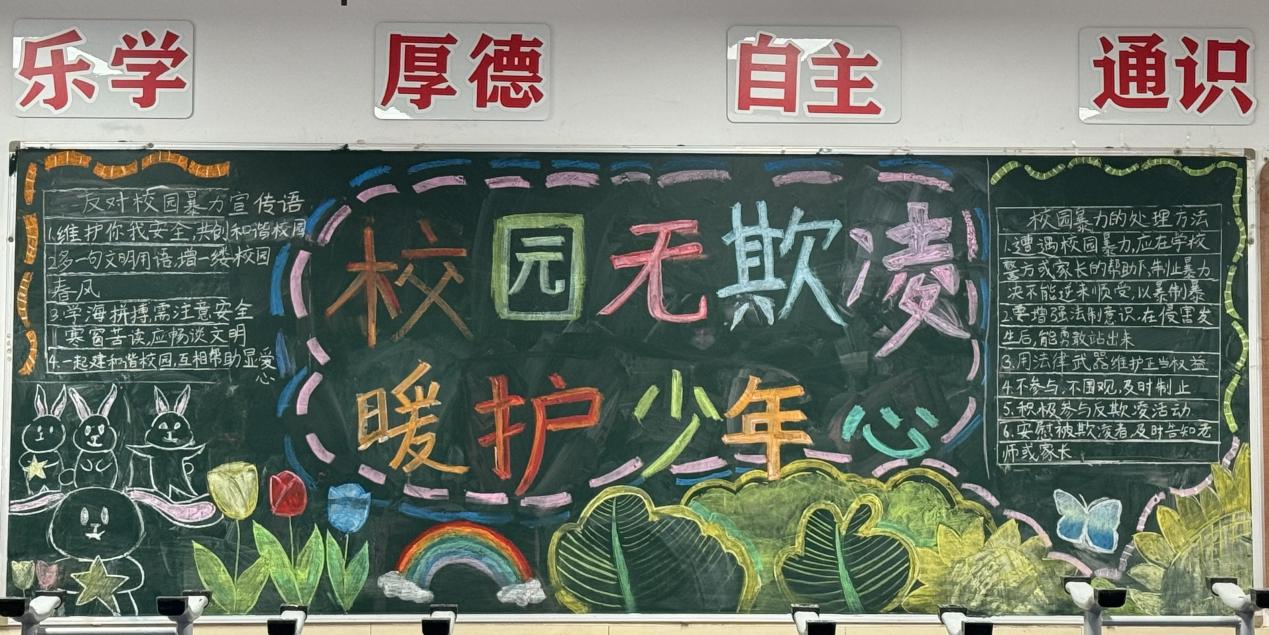 乐学
厚德
自主
通识
反对校园暴力宣传语
1.维护你我安全,共创和谐校园
2.多一句文明用语,增一缕校园
春风
3.学海拼搏需注意安全
寒窗苦读,应畅谈文明
4.一起建和谐校园,互相帮助显爱
心
校园无欺凌
暖护少年心
校园暴力的处理方法
1.遭遇校园暴力,应在学校
警方或家长的帮助下,制止暴力
决不能逆来顺受,以暴制暴
2.要增强法制意识,在侵害发
生后,能勇敢站出来
3.用法律武器维护正当权益
4.不参与,不围观,及时制止
5.积极参与反欺凌活动
6.安慰被欺凌者,及时告知老
师或家长